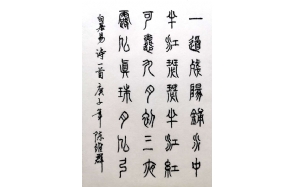 一道殘陽鋪水中
半江瑟瑟半江紅
可憐九月初三夜
露似眞珠月似弓
白居易诗一首庚子年陈維群